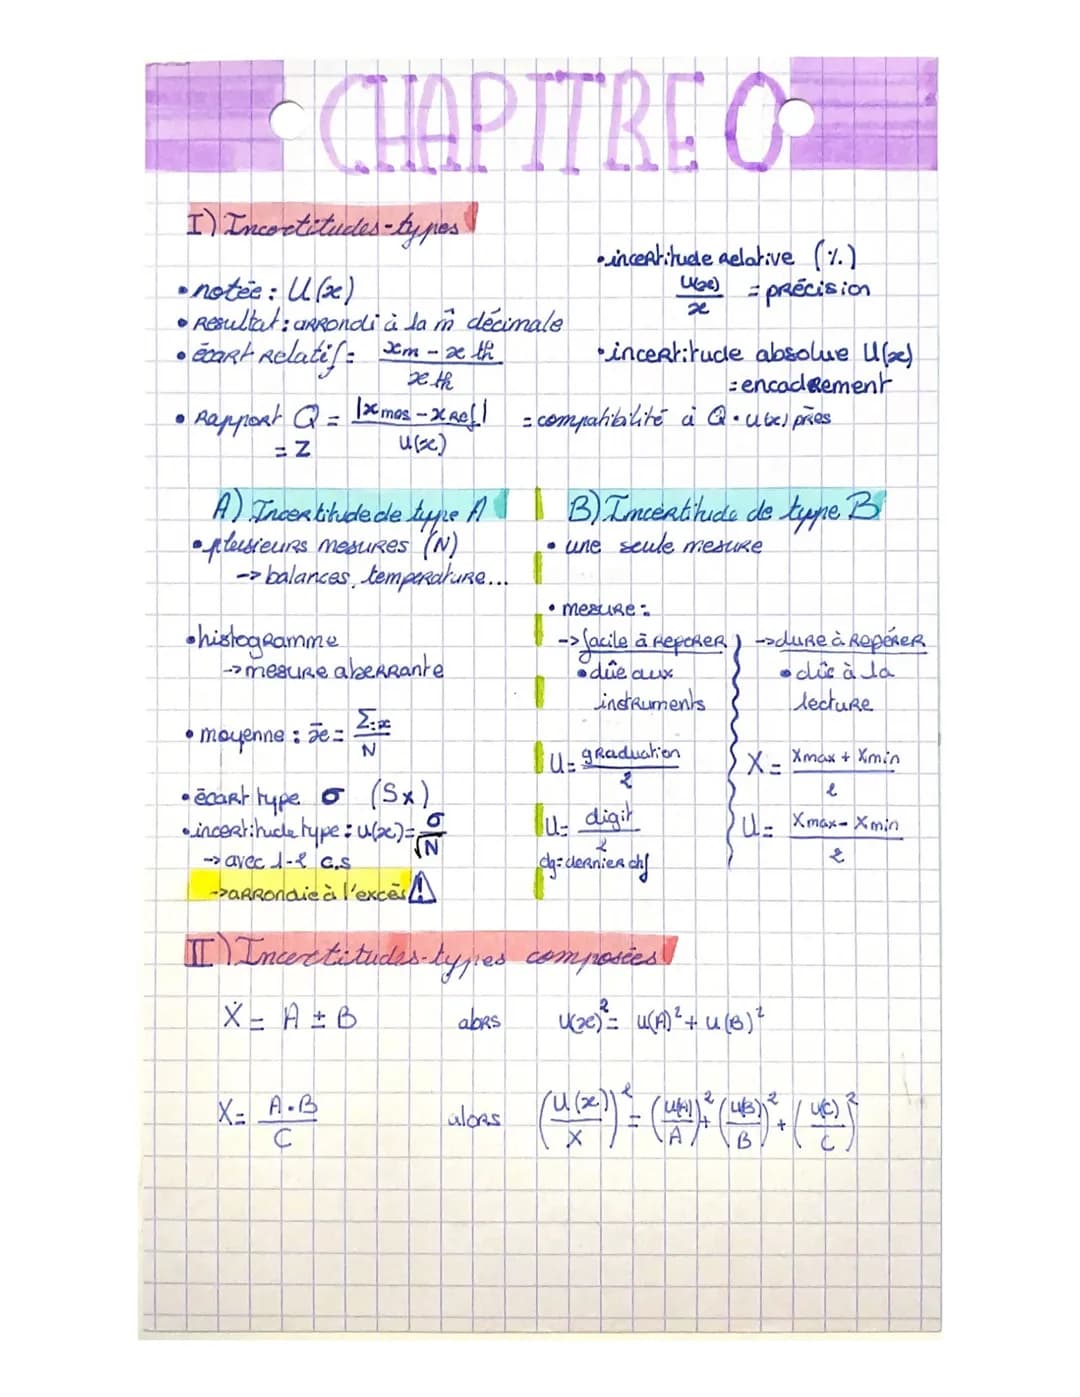 CHAPITRE 0
I) Incertitudes-types
• notée : U(x)
• Résultat : arrondi à la m̂ décimale
• écart Relatif = (xm - x th) / (x th)
• Rapport Q = |x mes - x Ref| / u(x) = compatibilité à Q · u(x) près
= Z
• incertitude relative (%)
u(x) / x = précision
• incertitude absolue U(x)
= encadrement
A) Incertitude de type A
• plusieurs mesures (N)
-> balances, température...
• histogramme
-> mesure aberrante
• moyenne : x̄ = Σx / N
• écart type σ (Sx)
• incertitude type : u(x) = σ / √N
-> avec 1-2 c.s
-> arrondie à l'excès ⚠
B) Incertitude de type B
• une seule mesure
• mesure :
-> facile à repérer
• dûe aux
instruments
U = graduation / 2
U = digit / 2
dg = dernier chf
-> dure à Repérer
• dûe à la
lecture
X = (Xmax + Xmin) / 2
U = (Xmax - Xmin) / 2
II) Incertitudes-types composées
X = A ± B alors u(x)² = u(A)² + u(B)²
X = A · B / C alors (u(x) / X)² = (u(A) / A)² + (u(B) / B)² + (u(C) / C)²